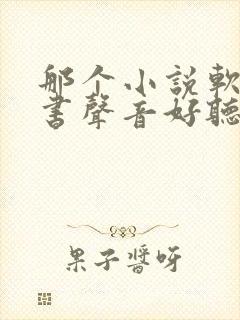 那个小説軟
書聲音好聽
果子醬呀